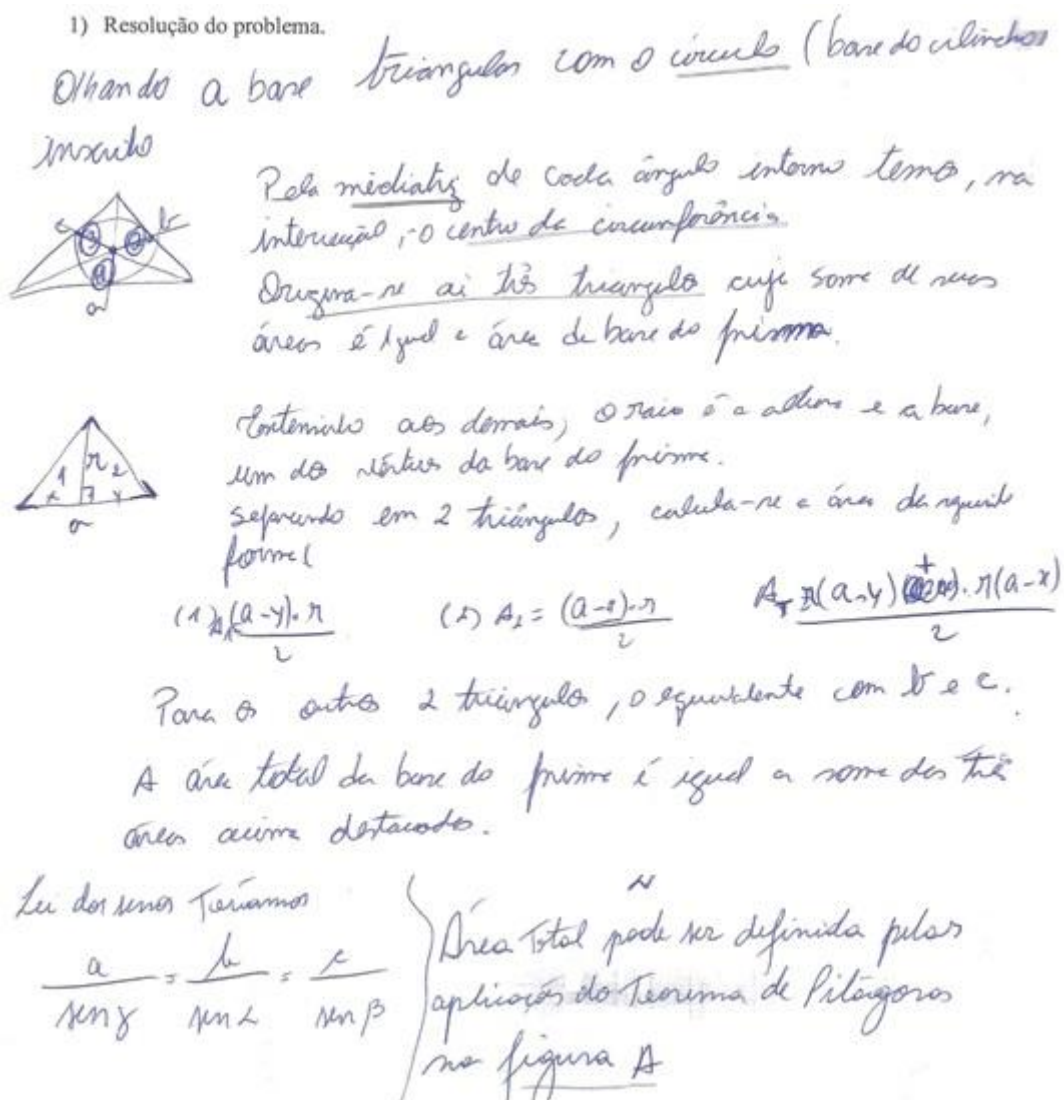 1) Resolução do problema.
Olhando a base triangular com o círculo (base do cilindro
inscrito
Pela mediatriz de cada ângulo interno temos, na
interseção, o centro da circunferência
Origina-se ai três triangulo cuja soma de suas
áreas é igual a área da base do prisma.
c b
a
aos demais, o raio é a altura e a base,
um dos vértices da base do prisma.
separando em 2 triângulos, calcula-se a área da seguinte
forma
1 r 2
x y
a
(1) A1 (a-y).r / 2 (2) A2 = (a-x).r / 2 AT r(a-y) + r(a-x) / 2
Para os outros 2 triângulos, o equivalente com b e c.
A área total da base do prisma é igual a soma das três
áreas acima destacados.
Lei dos senos Teríamos
a / sen γ = b / sen α = c / sen β
Área Total pode ser definida pelas
aplicação do Teorema de Pitágoras
na figura A